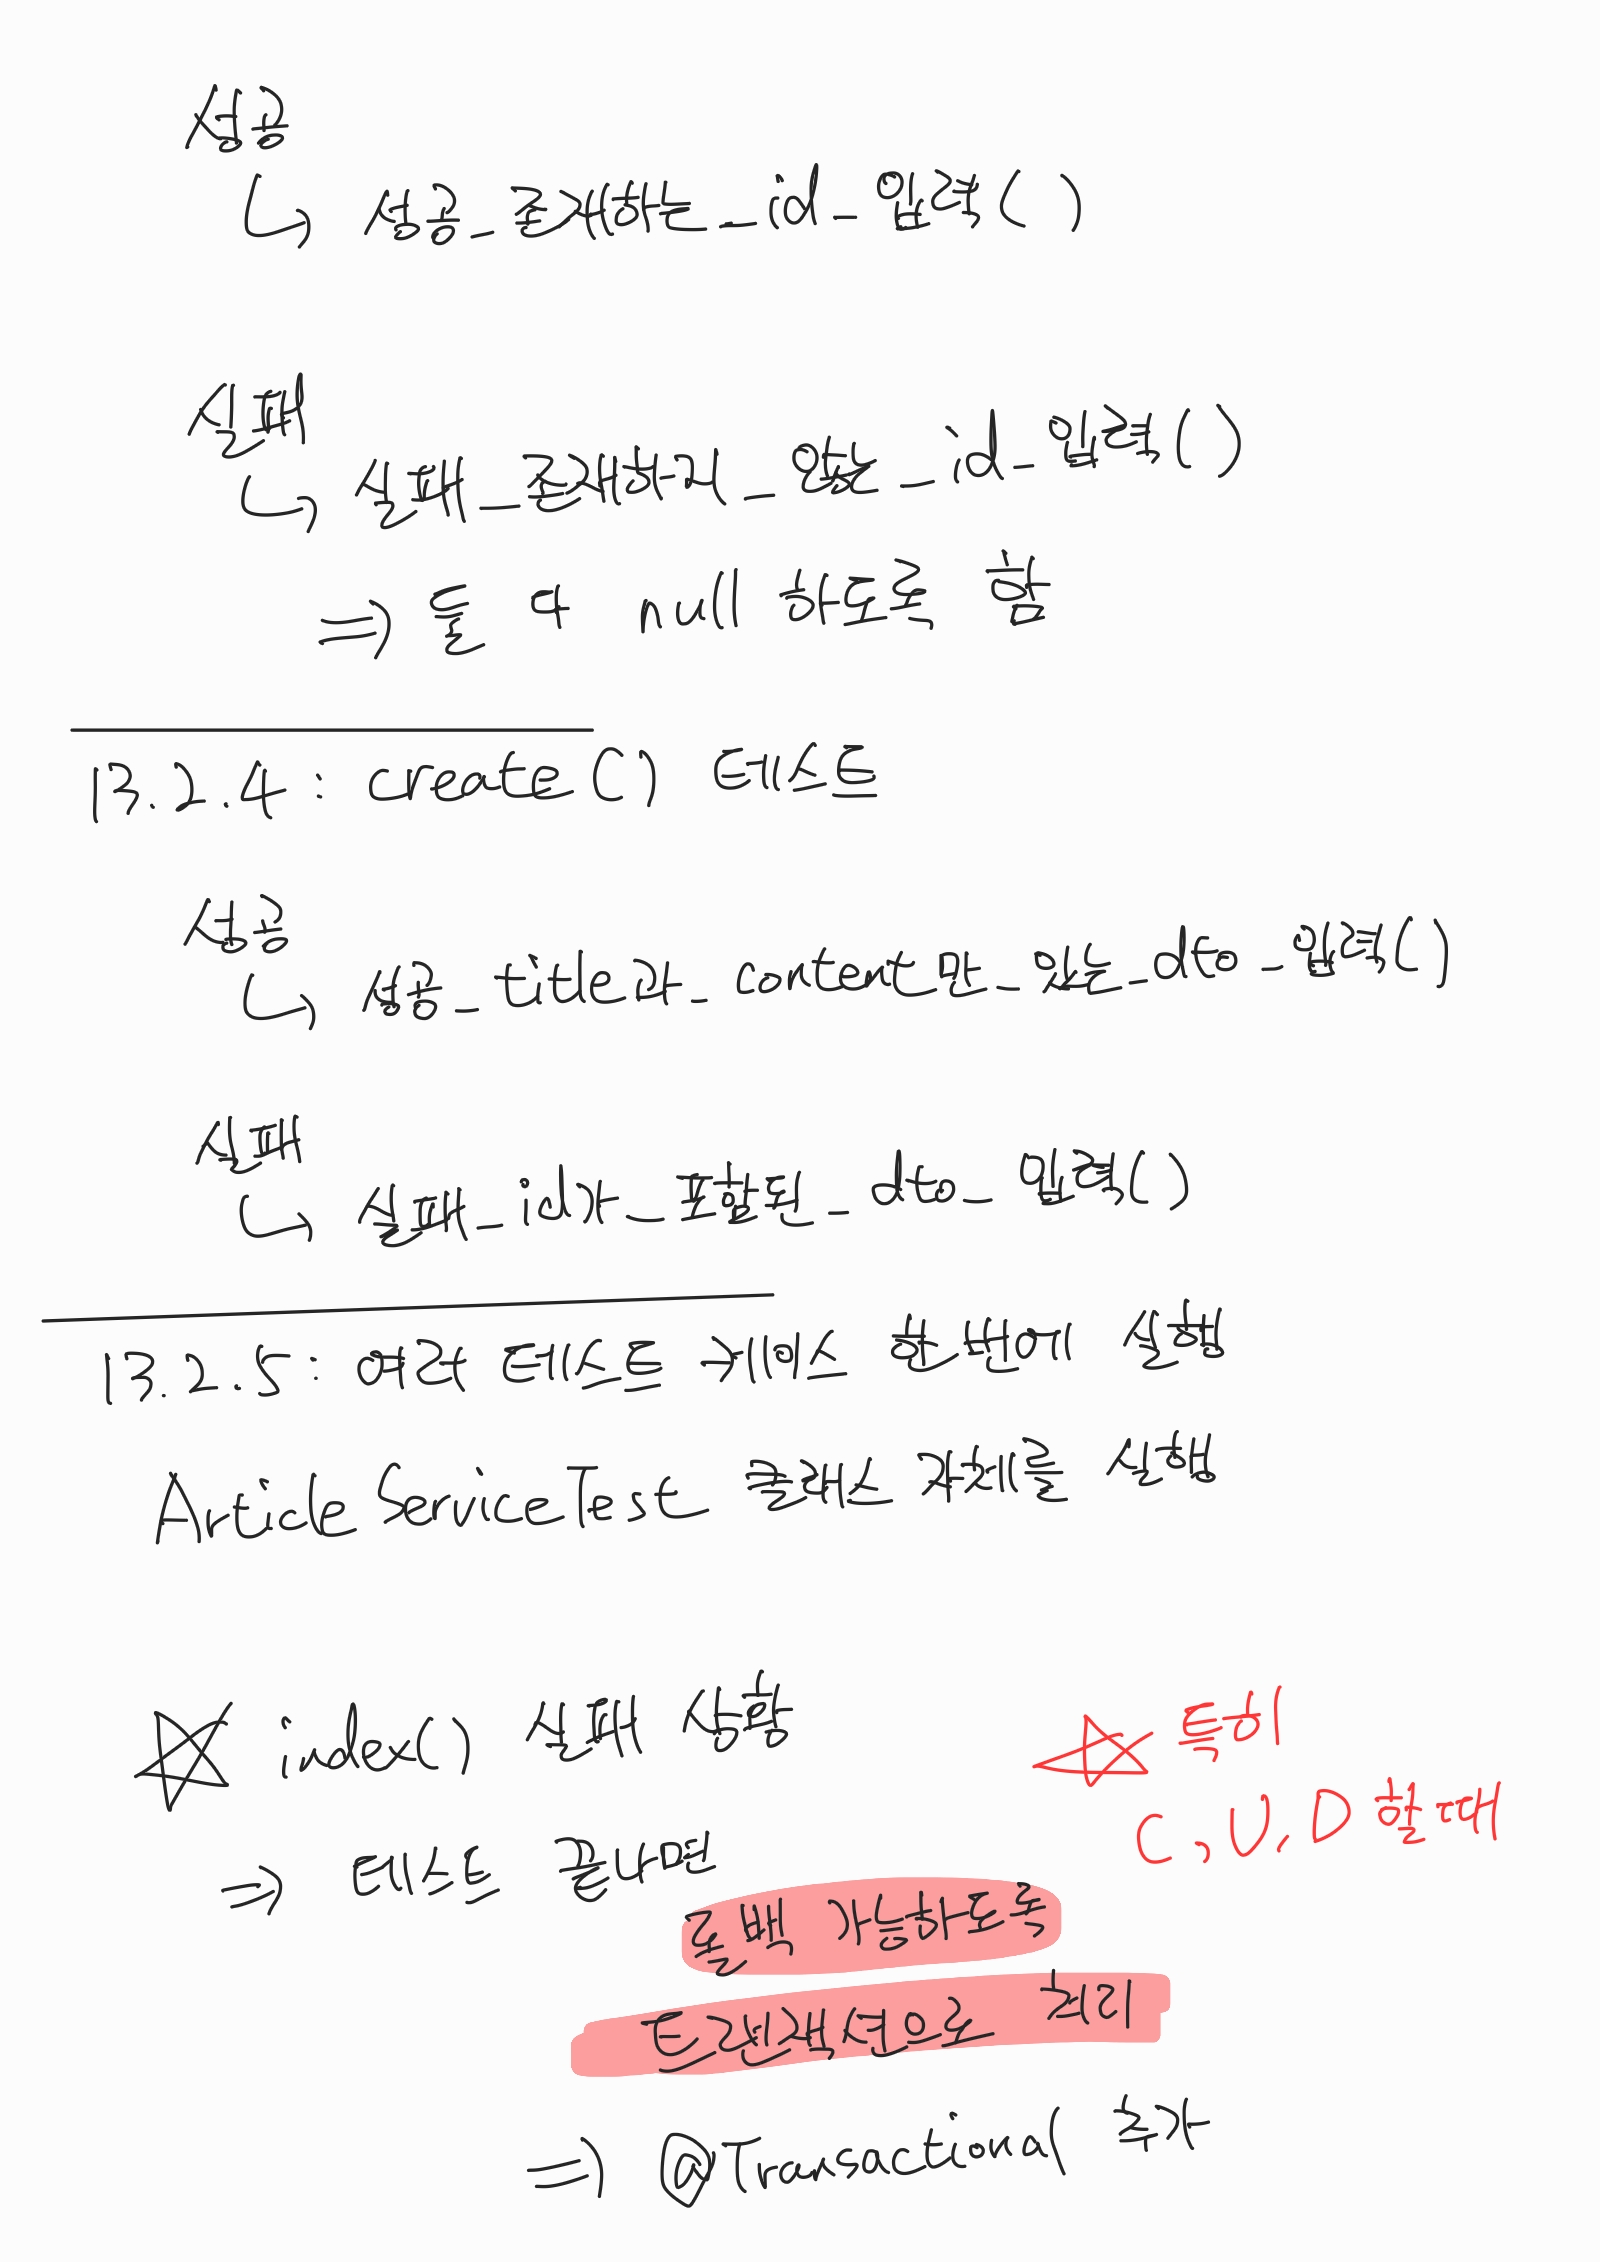 성공
↳ 성공_존재하는_id_입력()
실패
↳ 실패_존재하지_않는_id_입력()
⇒ 둘 다 null 하도록 함
13.2.4: create() 테스트
성공
↳ 성공_title과_content만_있는_dto_입력()
실패
↳ 실패_id가_포함된_dto_입력()
13.2.5: 여러 테스트 케이스 한번에 실행
ArticleServiceTest 클래스 자체를 실행
☆ index() 실패 상황
☆ 특히
C, U, D 할때
⇒ 테스트 끝나면
롤백 가능하도록
트랜잭션으로 처리
⇒ @Transactional 추가